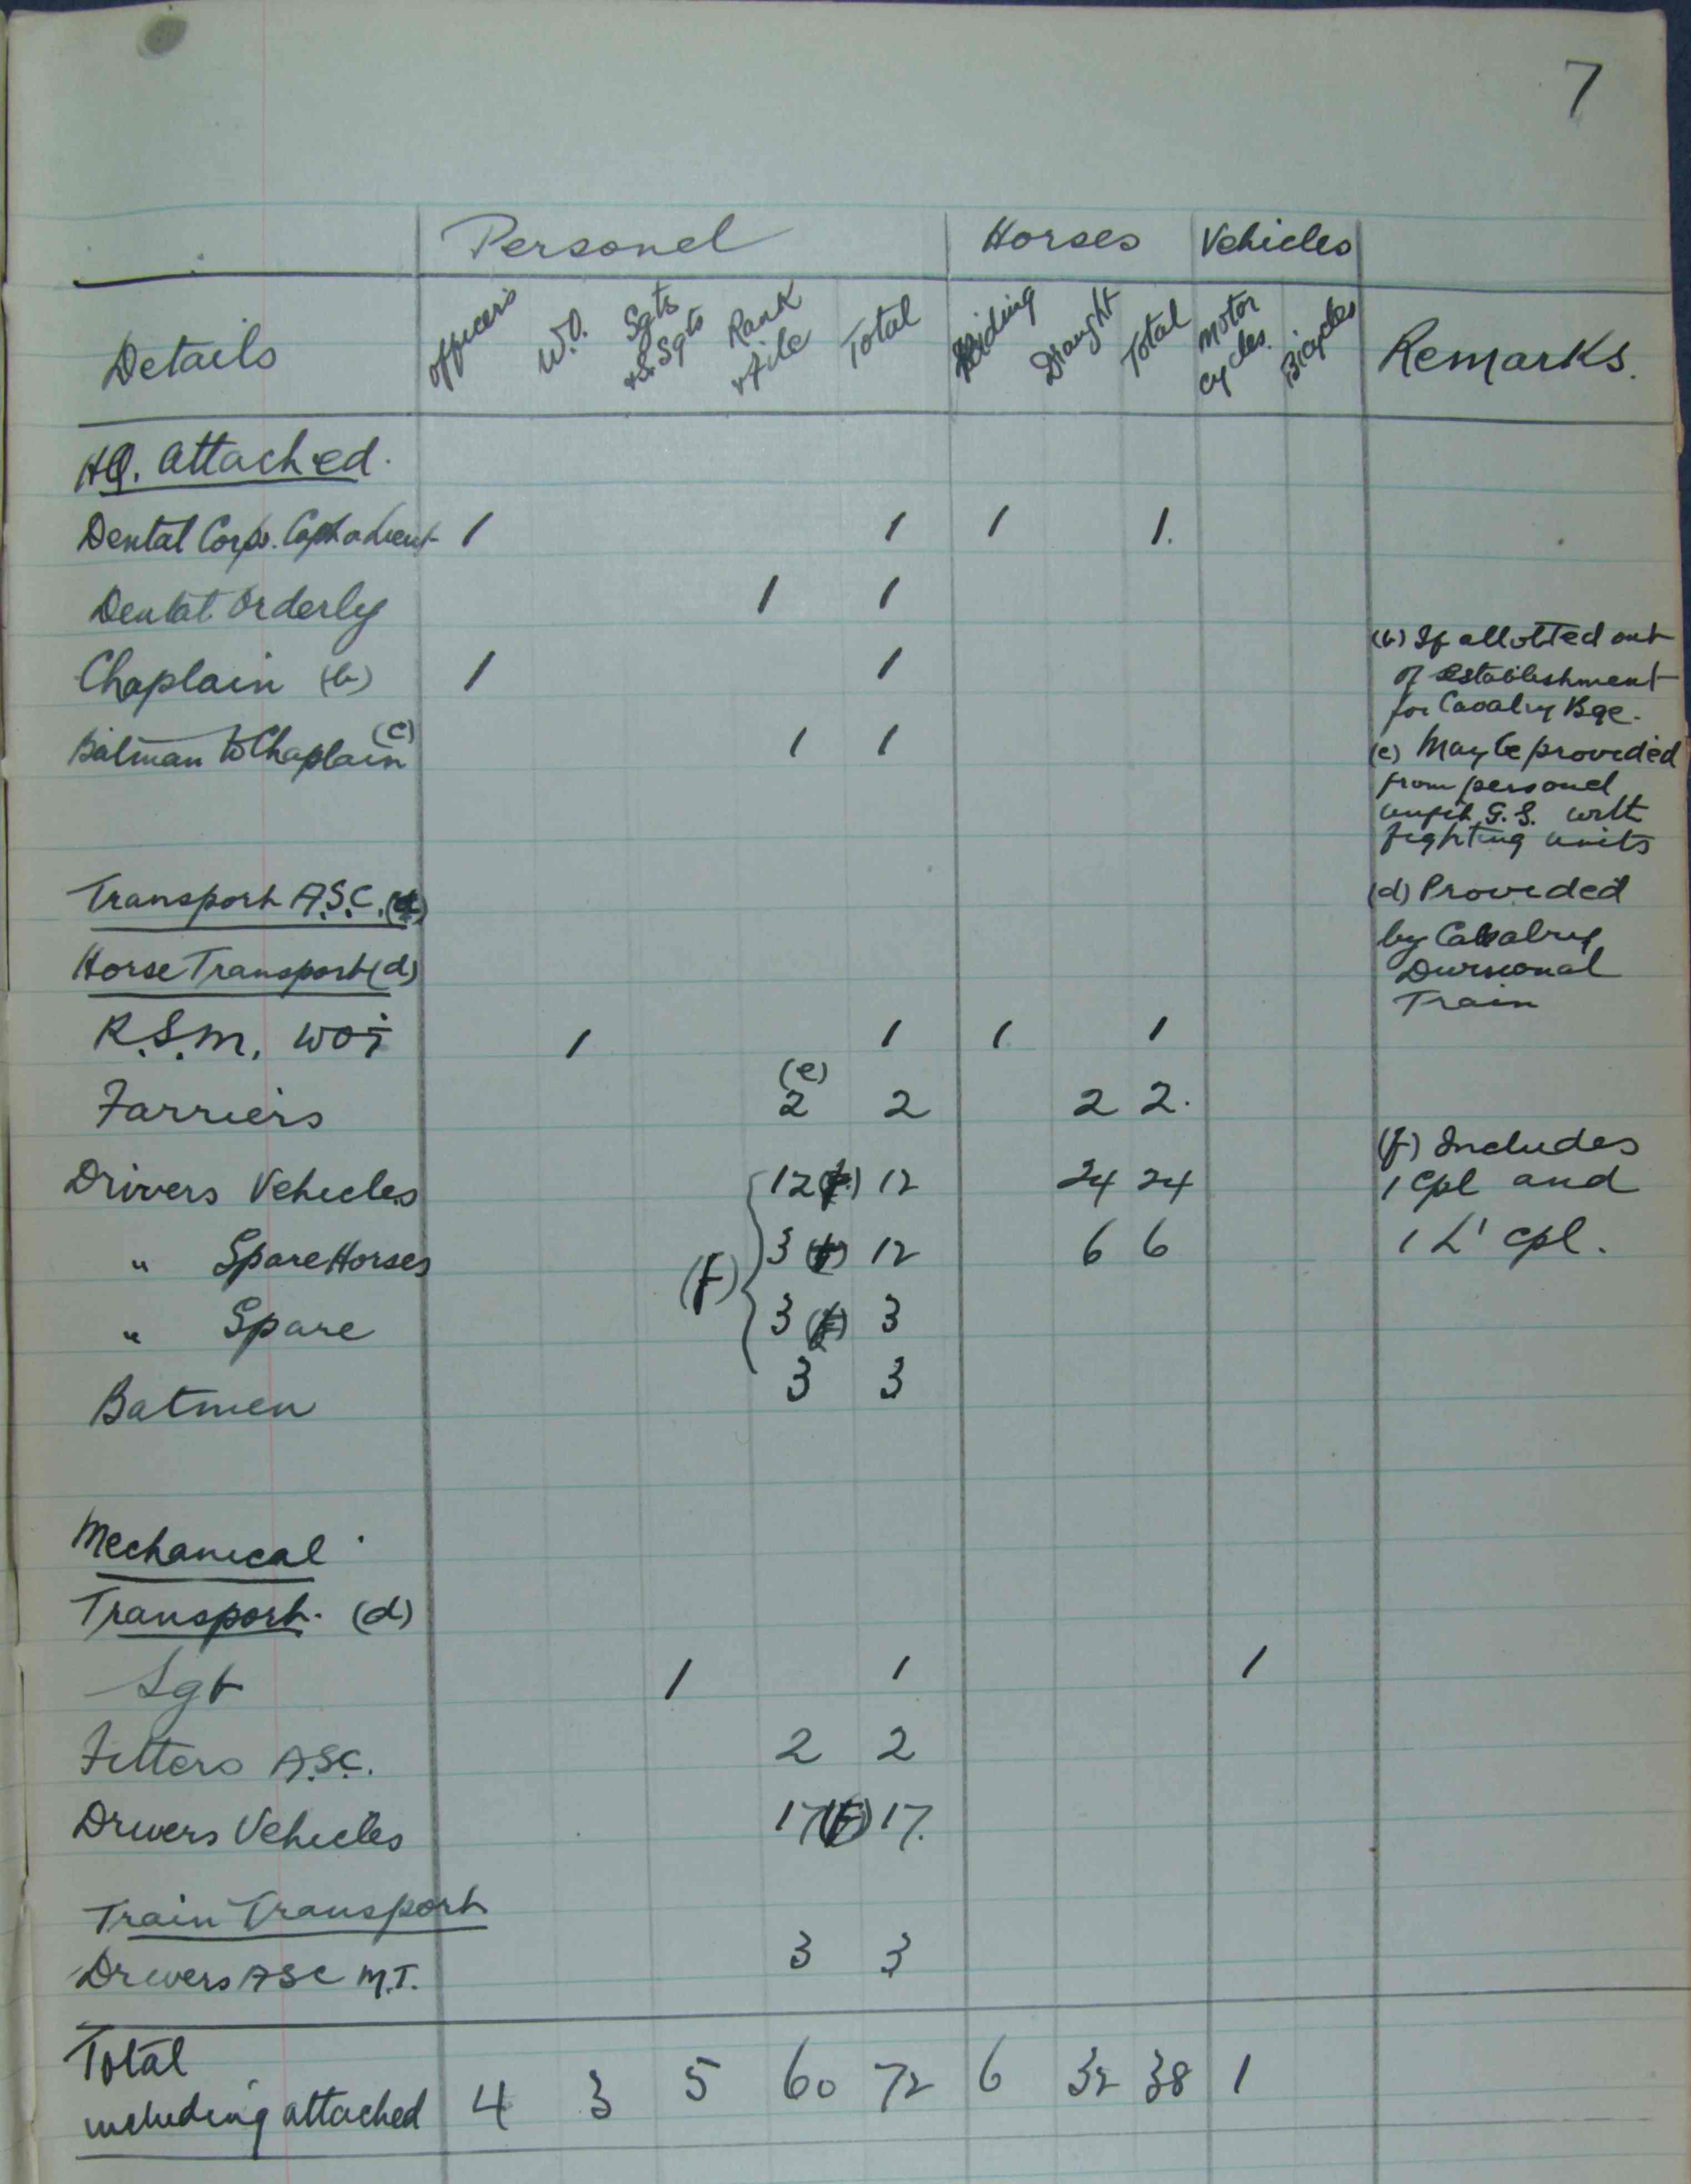 7
Personel Horses Vehicles
Details Officers W.O. Sgts & S. Sgts Rank & File Total Riding Draught Total Motor cycles. Bicycles Remarks.
HQ. Attached.
Dental Corps. Capt or Lieut 1 1 1 1.
Dental Orderly 1 1
Chaplain (b) 1 1
(b) If allotted out
of establishment
for Cavalry Bge.
Batman to Chaplain (c) 1 1
(c) May be provided
from personel
unfit G.S. with
fighting units
Transport A.S.C.
(d) Provided
by Cavalry
Divisional
Train
Horse Transport (d)
R.S.M. WOI 1 1 1 1
Farriers (e) 2 2 2 2.
Drivers Vehicles 12 (f) 12 24 24
(f) Includes
1 Cpl and
1 L' Cpl.
" Spare Horses 3 (f) 12 6 6
(f)
" Spare 3 (f) 3
Batmen 3 3
Mechanical
Transport. (d)
Sgt 1 1 1
Fitters A.S.C. 2 2
Drivers Vehicles 17 (f) 17.
Train Transport
Drivers ASC M.T. 3 3
Total
including attached 4 3 5 60 72 6 32 38 1